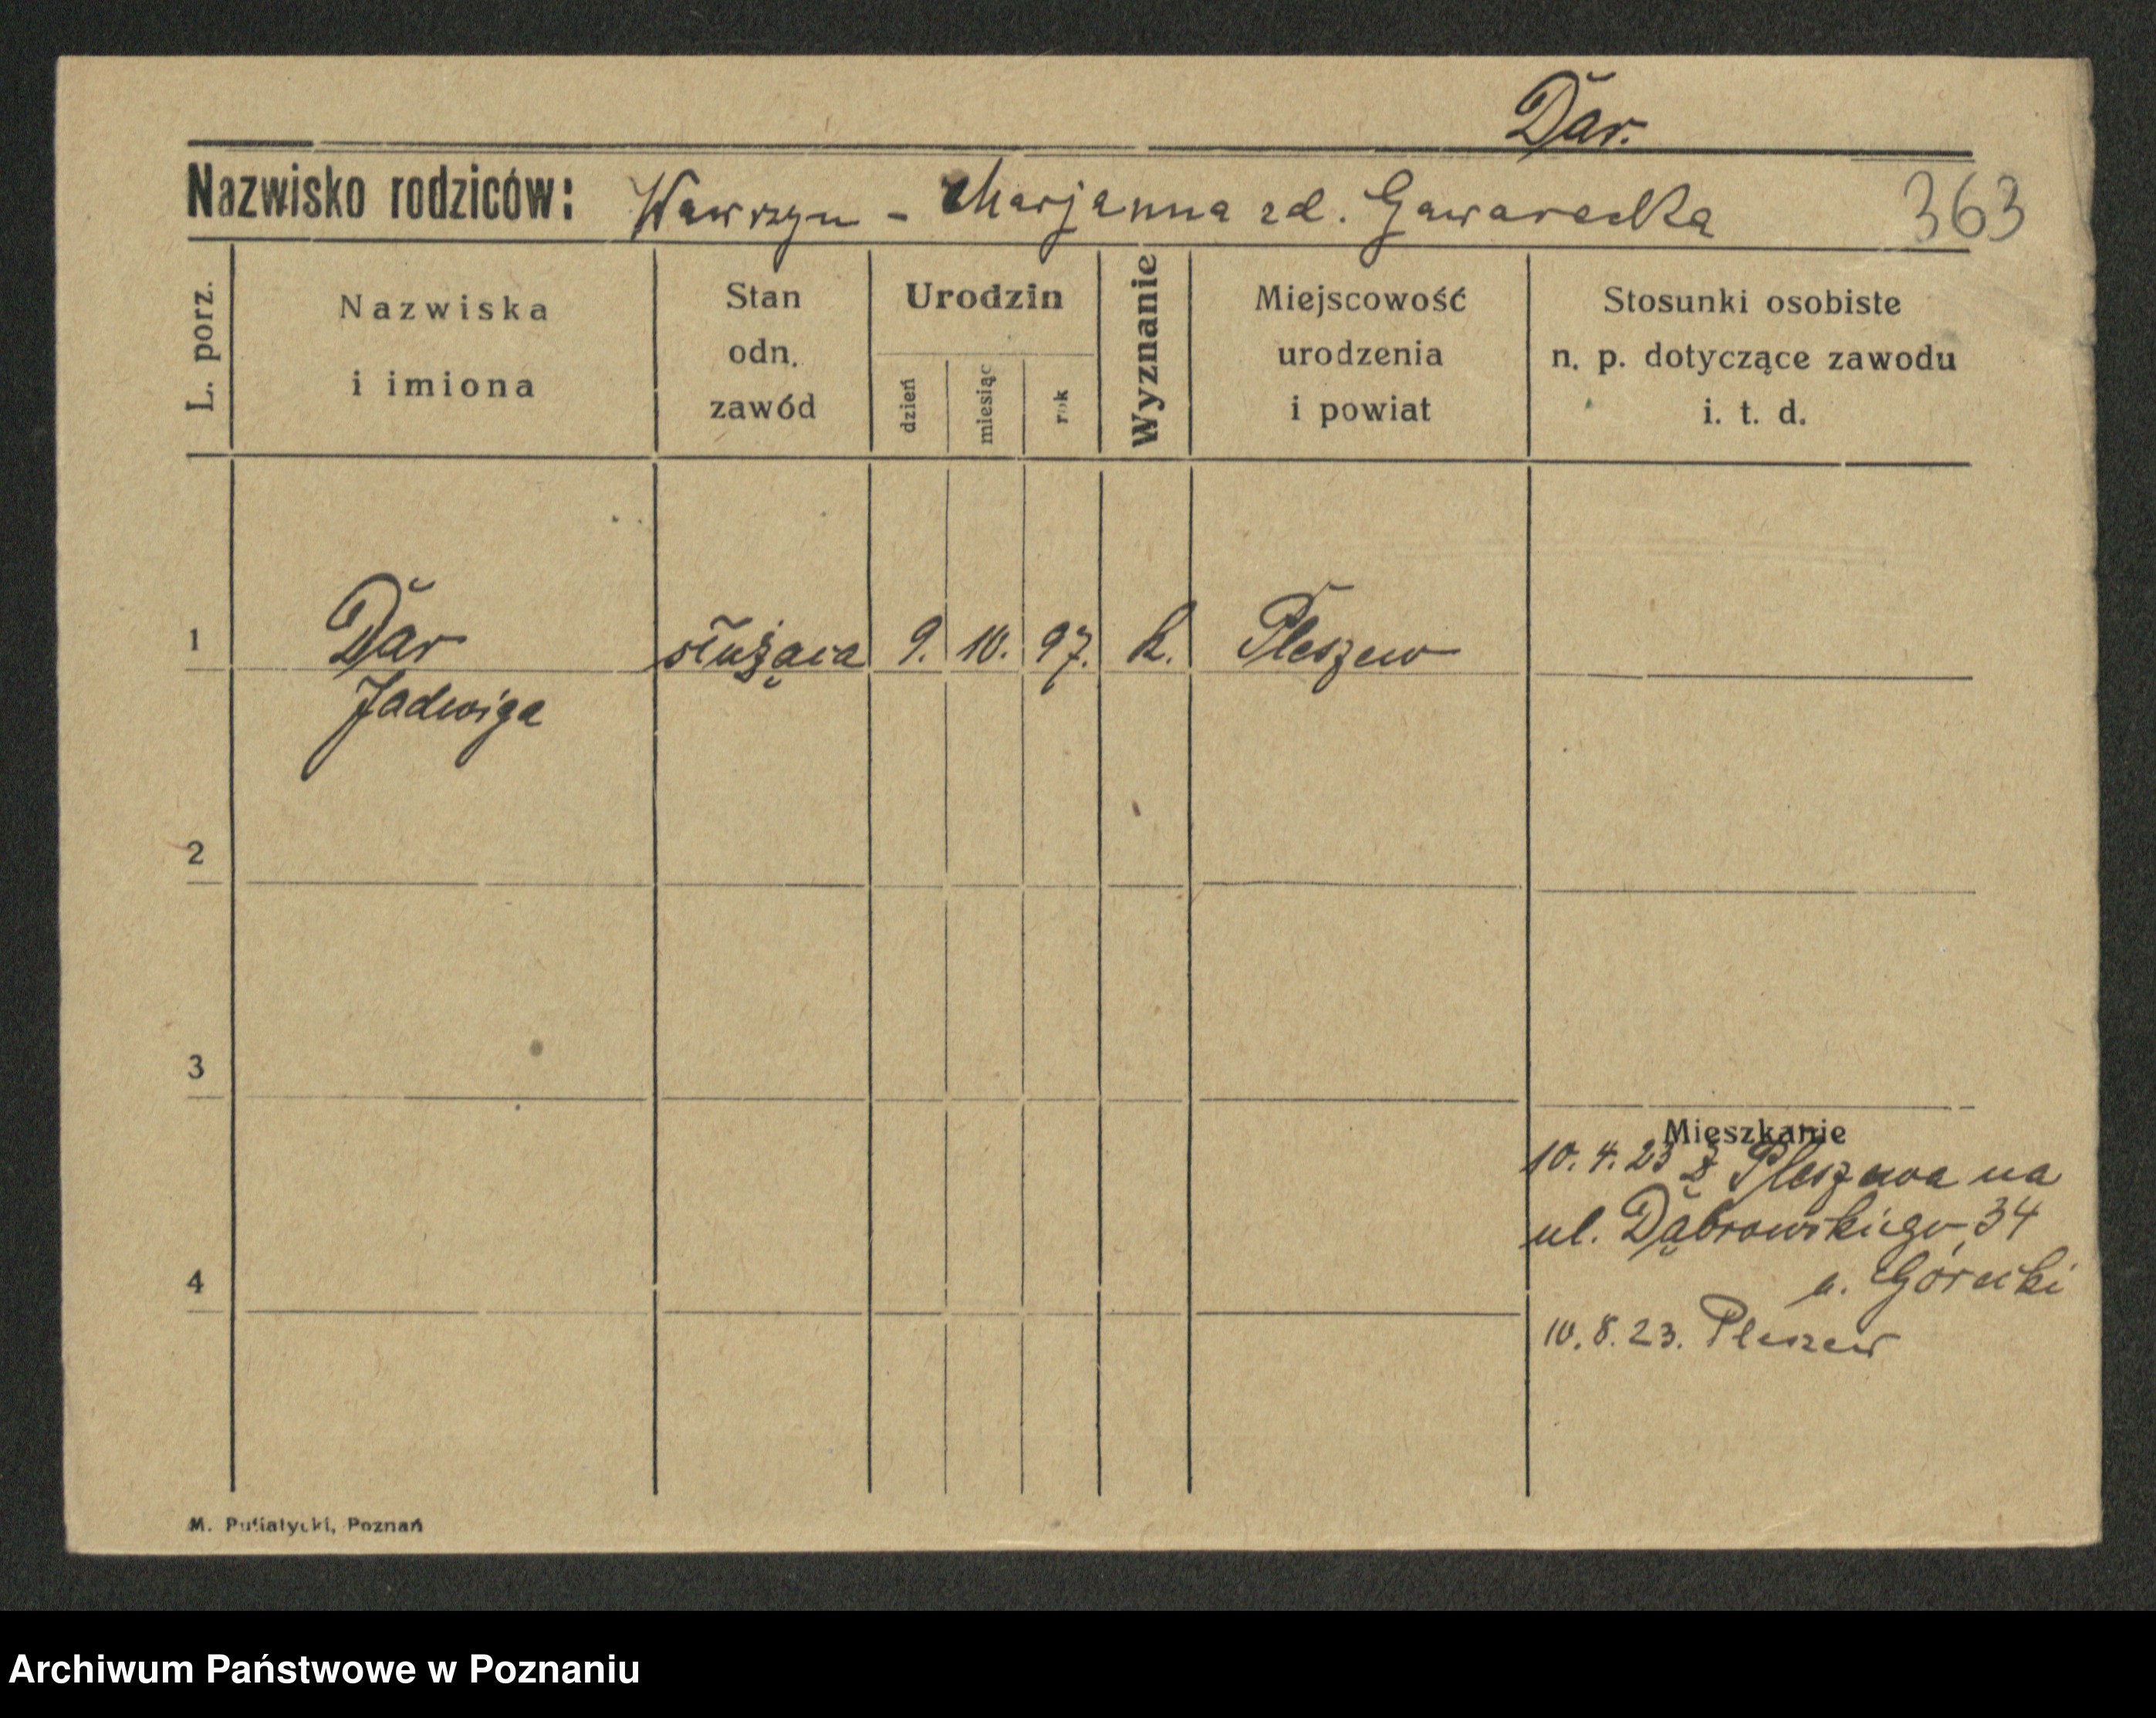 Dar.
Nazwisko rodziców: Wawrzyn - Marjanna zd. Gawarecka 363
L. porz.
Nazwiska
i imiona
Stan
odn.
zawód
Urodzin
dzień
miesiąc
rok
Wyznanie
Miejscowość
urodzenia
i powiat
Stosunki osobiste
n. p. dotyczące zawodu
i. t. d.
1 Dar służąca 9. 10. 97. k. Pleszew
Jadwiga
2
3
Mieszkanie
10. 4. 23 z Pleszewa na
ul. Dąbrowskiego 34
u. Górecki
4
10. 8. 23. Pleszew
M. Putiatycki, Poznań
Archiwum Państwowe w Poznaniu